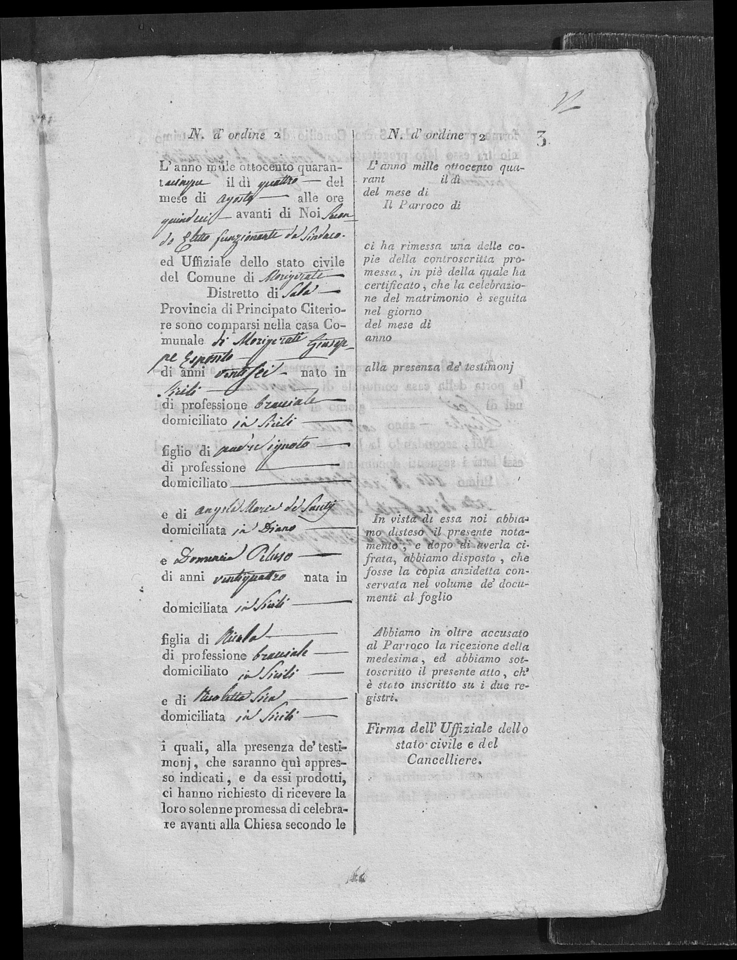 N. d'ordine 2
L'anno mille ottocento quaran-
tacinque il dì quattro del
mese di Agosto alle ore
quindeci avanti di Noi Secon
do Eletto funzionante da Sindaco
ed Uffiziale dello stato civile
del Comune di Morigerati
Distretto di Sala
Provincia di Principato Citerio-
re sono comparsi nella casa Co-
munale di Morigerati Giusep
pe Esposito
di anni ventisei nato in
Sicilì
di professione bracciale
domiciliato in Sicilì
figlio di padre ignoto
di professione
domiciliato
e di Angela Maria de
domiciliata in Diano
e Domenica Peluso
di anni ventiquattro nata in
domiciliata in Sicilì
figlia di Nicola
di professione bracciale
domiciliato in Sicilì
e di Nicoletta
domiciliata in Sicilì
i quali, alla presenza de' testi-
monj, che saranno quì appres-
so indicati, e da essi prodotti,
ci hanno richiesto di ricevere la
loro solenne promessa di celebra-
re avanti alla Chiesa secondo le
N. d'ordine 2
3
L'anno mille ottocento qua-
rant il dì
del mese di
Il Parroco di
ci ha rimessa una delle co-
pie della controscritta pro-
messa, in piè della quale ha
certificato, che la celebrazio-
ne del matrimonio è seguita
nel giorno
del mese di
anno
alla presenza de' testimonj
In vista di essa noi abbia-
mo disteso il presente nota-
mento; e dopo di averla ci-
frata, abbiamo disposto, che
fosse la copia anzidetta con-
servata nel volume de' docu-
menti al foglio
Abbiamo in oltre accusato
al Parroco la ricezione della
medesima, ed abbiamo sot-
toscritto il presente atto, ch'
è stato inscritto su i due re-
gistri.
Firma dell'Uffiziale dello
stato civile e del
Cancelliere.